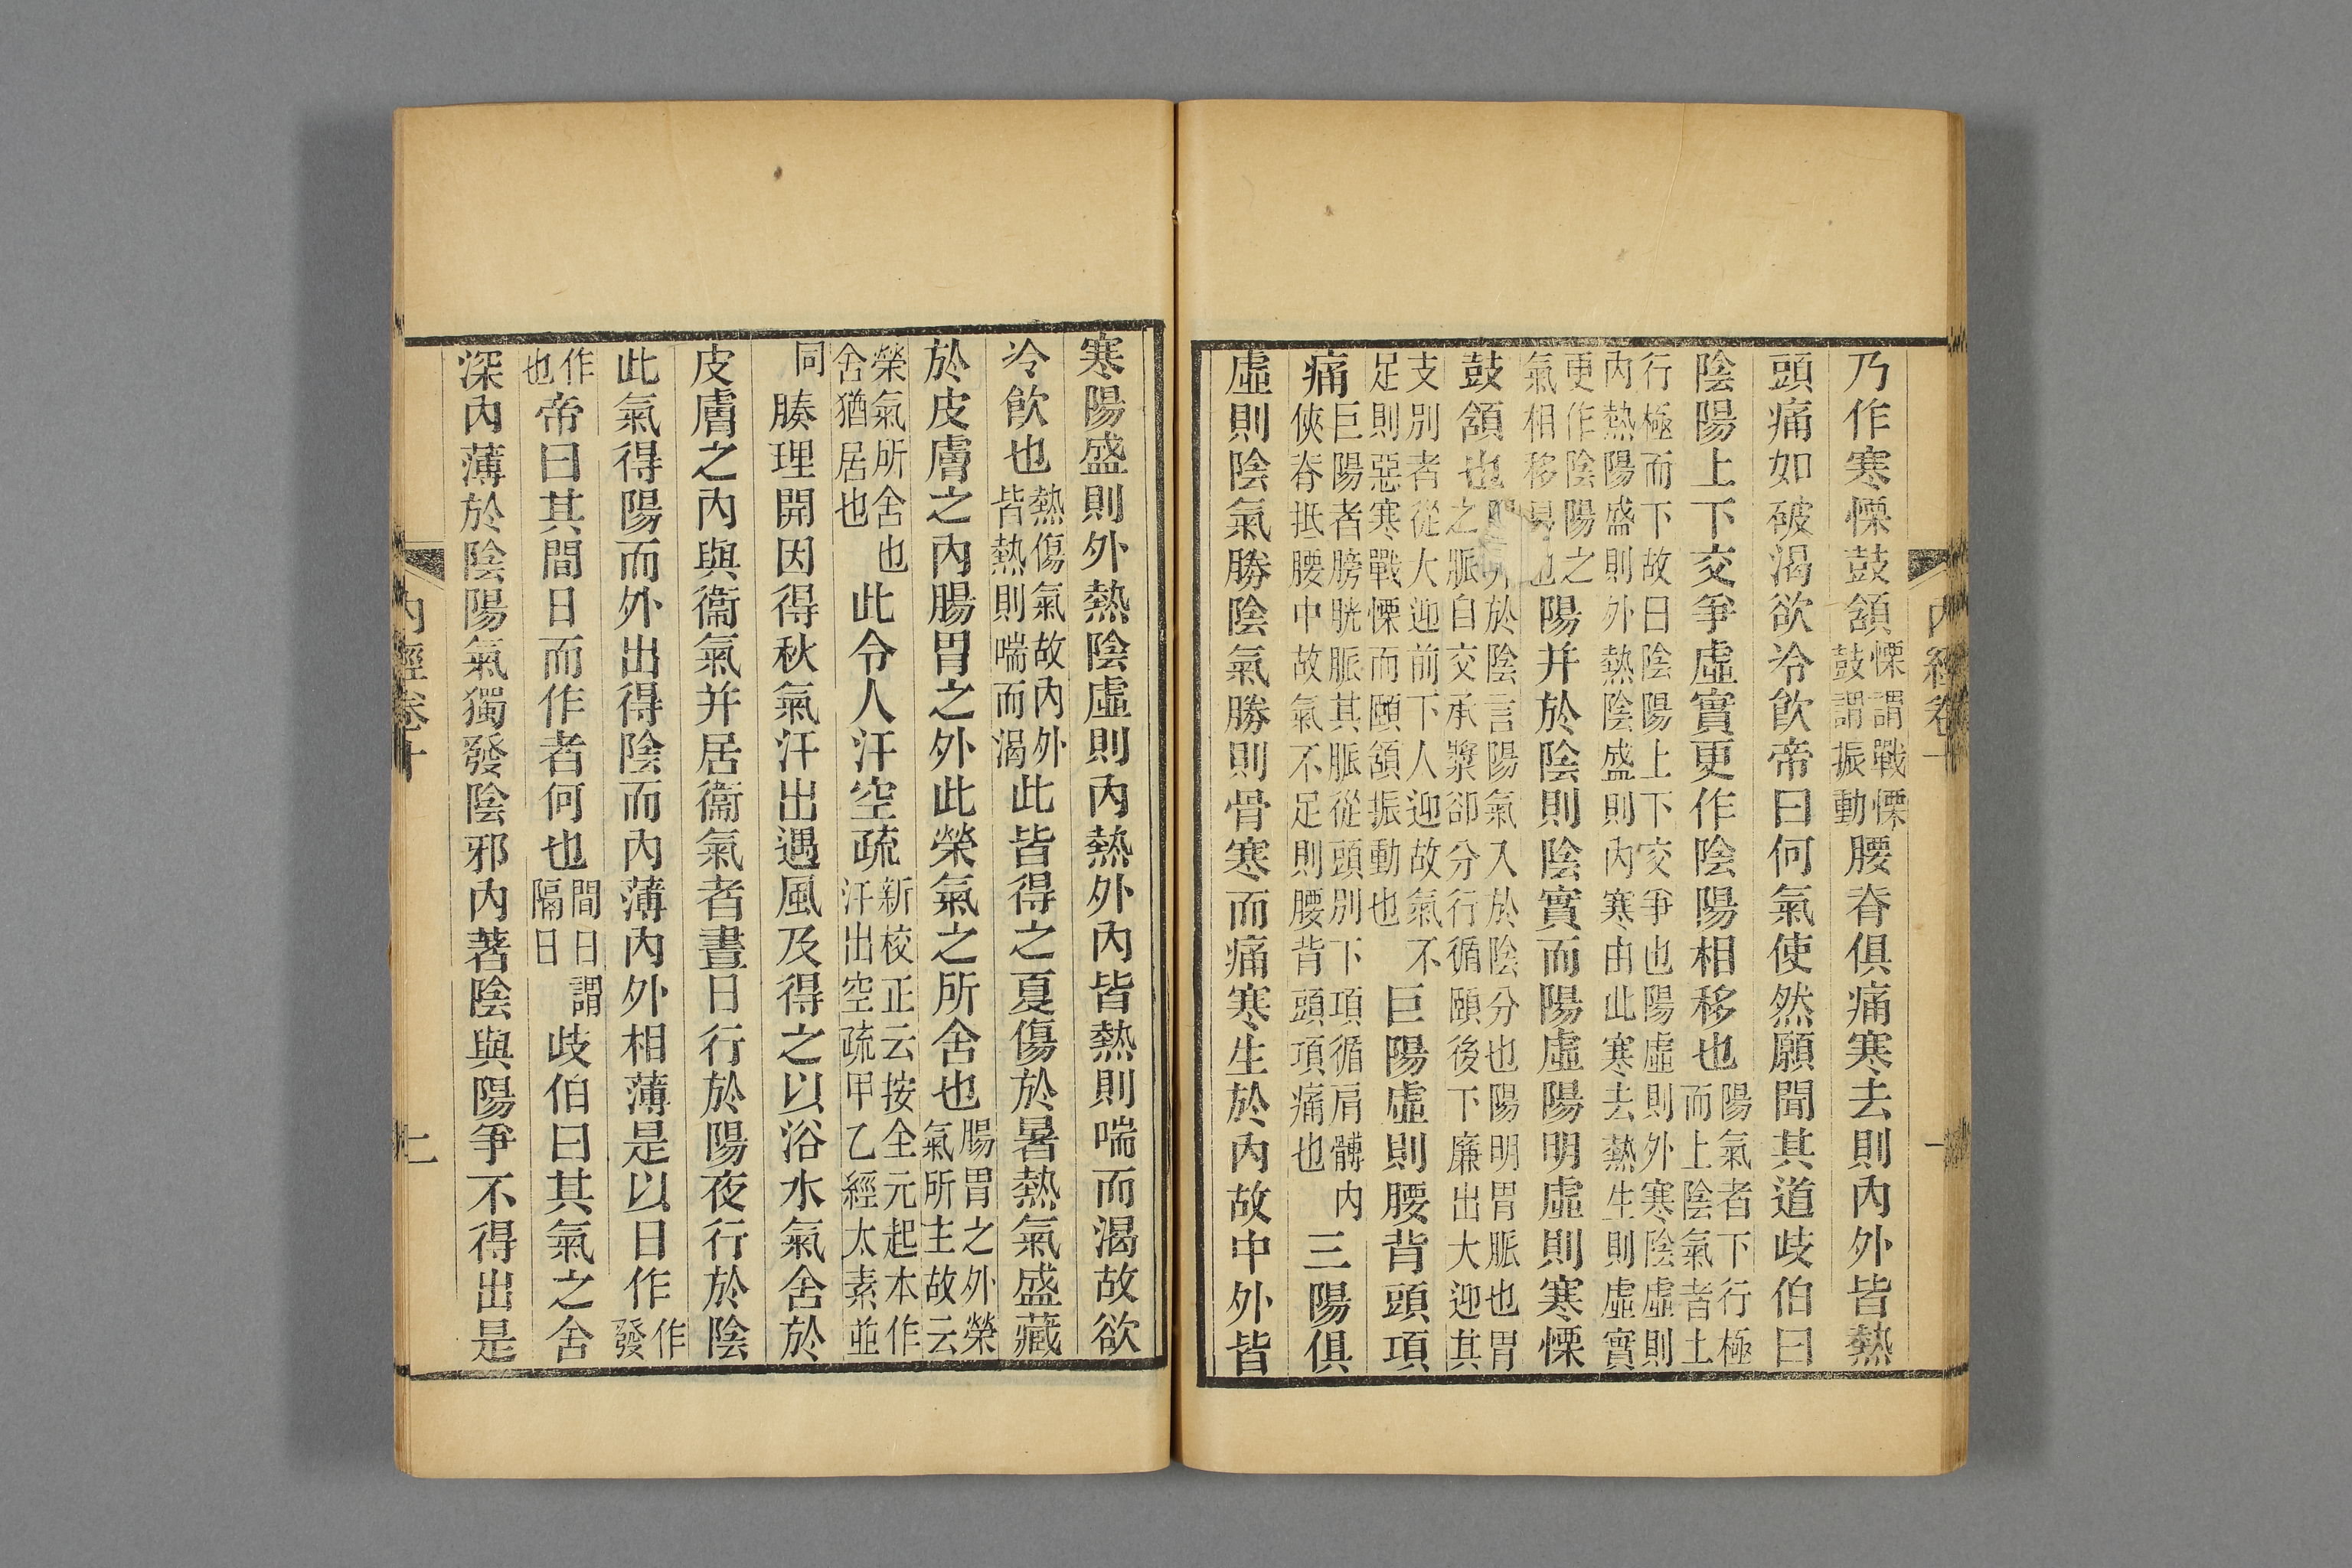 乃作寒慄鼓頷慄謂戰慄鼓謂振動腰脊俱痛寒去則內外皆熱
頭痛如破渴欲冷飮帝曰何氣使然願聞其道歧伯曰
陰陽上下交爭虛實更作陰陽相移也陽氣者下行極而上陰氣者土
行極而下故曰陰陽上下交爭也陽虛則外寒陰虛則內熱陽盛則外熱陰盛則內寒由此寒去熱生則虛實
更作陰陽之氣相移易也陽并於陰則陰實而陽虛陽明虛則寒慄
鼓頷也於陰言陽氣入於陰分也陽明胃脈也胃之脈自交承漿卻分行循頤後下廉出大迎其
支別者從大迎前下人迎故氣不足則惡寒戰慄而頤頷振動也巨陽虛則腰背頭項
痛巨陽者膀胱脈其脈從頭別下項循肩髆內俠脊抵腰中故氣不足則腰背頭項痛也三陽俱
虛則陰氣勝陰氣勝則骨寒而痛寒生於內故中外皆
內經卷十
一
寒陽盛則外熱陰虛則內熱外內皆熱則喘而渴故欲
冷飮也熱傷氣故內外皆熱則喘而渴此皆得之夏傷於暑熱氣盛藏
於皮膚之內腸胃之外此榮氣之所舍也腸胃之外榮氣所主故云
榮氣所舍也舍猶居也此令人汗空疏新校正云按全元起本作汗出空疏甲乙經太素並
同腠理開因得秋氣汗出遇風及得之以浴水氣舍於
皮膚之內與衞氣并居衞氣者晝日行於陽夜行於陰
此氣得陽而外出得陰而內薄內外相薄是以日作作發
作也帝曰其間日而作者何也間日謂隔日歧伯曰其氣之舍
深內薄於陰陽氣獨發陰邪內著陰與陽爭不得出是
內經卷十
二